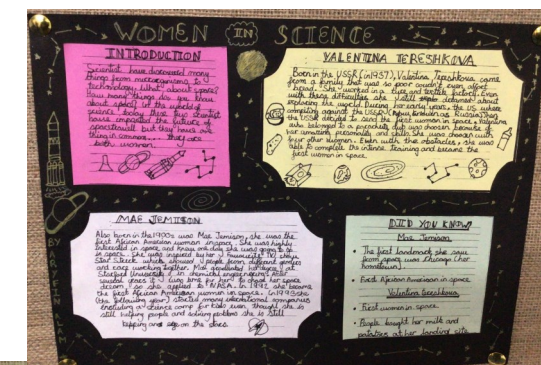 WOMEN IN SCIENCE
INTRODUCTION
Scientist have discovered many
things from microorganisms to
technology. What about space?
How many things do you know
about space? In the world of
science, today these two scientist
have impacted the future of
space travel but they have one
thing in common... they are
both women.
VALENTINA TERESHKOVA
Born in the USSR (in 1937), Valentina Tereshkova came
from a family that was so poor couldn't even afford
bread. She worked in a tyre and textile factory. Even
with these difficulties, she still dreamed about
exploring the world. During her early years, the US were
competing against the USSR
the USSR decided to send the first women in space, Valentina
who belonged to a parachute club was chosen because of
her amazing personality and skills. She was chosen with
four other women. Even with the obstacles, she was
able to complete the intense training and became the
first woman in space.
MAE JEMISON
Also born in the 1900s was Mae Jemison, she was the
first African American woman in space. She was highly
interested in space, and knew one day she was going to go
in space. She was inspired by her favourite TV show
Star Trek which showed people from different genders
and races working together. Mae graduated her degree at
Stanford University in chemical engineering. After
it was time for her to chase her space
dream so she applied to NASA. In 1992, she became
the first African American woman in space. In 1993 she
(the following year) started many educational companies
including a science camp for kids even though she is
still helping people and solving problems she is still
keeping and eye on the stars.
DID YOU KNOW?
Mae Jemison
• The first landmark she saw
from space was Chicago (her
hometown)
• First African American in space
Valentina Tereshkova
• First women in space
• People bought her milk and
potatoes at her landing site